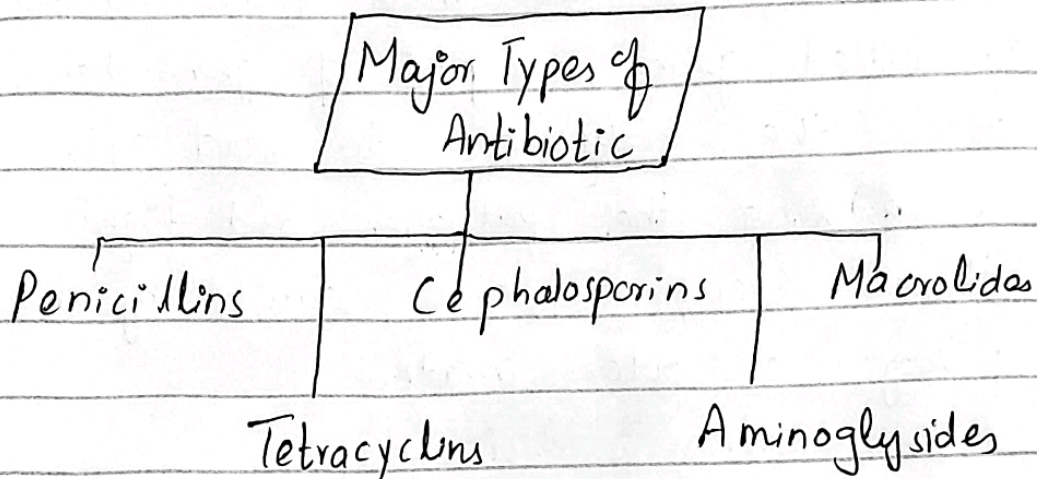 Major Types of
Antibiotic
Penicillins Cephalosporins Macrolides
Tetracyclins Aminoglysides